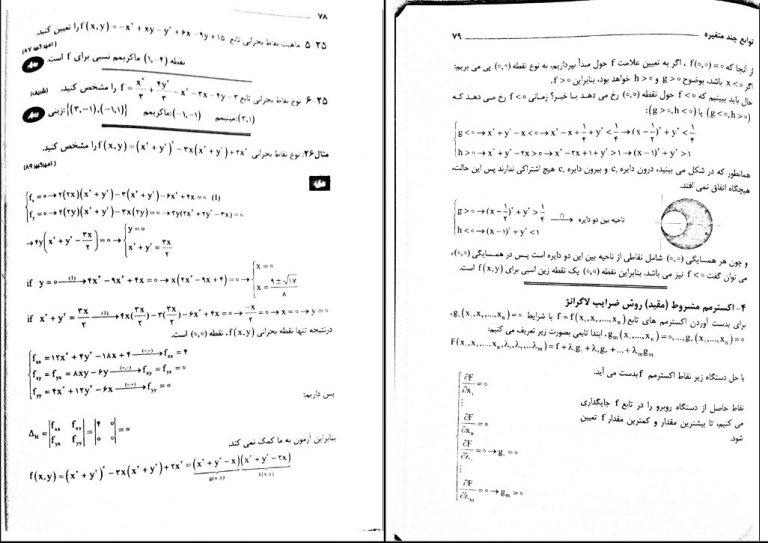 ۷۸
۲۵ ۵ ماهیت نقاط بحرانی تابع f(x,y) = −x² + xy − y² + ۶x − ۹y + ۱۵ را تعیین کنید.
نقطه (۱,−۴) ماکزیمم نسبی برای f است
۲۵ ۶ نوع نقاط بحرانی تابع f = x³/۳ + ۴y³/۳ − x² − ۳x − ۴y − ۳ را مشخص کنید.
(۳,۱): مینیمم (−۱,−۱): ماکزیمم {(۳,−۱),(−۱,۱)} زینی
مثال۲۶: نوع نقاط بحرانی f(x,y) = (x² + y²)² − ۳x(x² + y²) + ۲x² را مشخص کنید.
f_x = ۰ → ۲(۲x)(x² + y²) − ۳(x² + y²) − ۶x² + ۴x = ۰ (I)
f_y = ۰ → ۲(۲y)(x² + y²) − ۳x(۲y) = ۰ → ۲y(۲x² + ۲y² − ۳x) = ۰
→ ۴y(x² + y² − ۳x/۲) = ۰ → { y = ۰ , x² + y² = ۳x/۲
if y = ۰ —(I)→ ۴x³ − ۹x² + ۴x = ۰ → x(۴x² − ۹x + ۴) = ۰ → { x = ۰ , x = (۹ ± √۱۷)/۸
if x² + y² = ۳x/۲ —(I)→ ۴x(۳x/۲) − ۳(۳x/۲) − ۶x² + ۴x = ۰ → −x/۲ = ۰ → x = ۰ → y = ۰
درنتیجه تنها نقطه بحرانی f(x,y)، نقطه (۰,۰) است.
f_xx = ۱۲x² + ۴y² − ۱۸x + ۴ —(۰,۰)→ f_xx = ۴
f_xy = f_yx = ۸xy − ۶y —(۰,۰)→ f_xy = f_yx = ۰
f_yy = ۴x² + ۱۲y² − ۶x —(۰,۰)→ f_yy = ۰
پس داریم:
Δ_H = |f_xx f_xy; f_yx f_yy| = |۴ ۰; ۰ ۰| = ۰
بنابراین آزمون به ما کمک نمی کند.
f(x,y) = (x² + y²)² − ۳x(x² + y²) + ۲x² = (x² + y² − x)(x² + y² − ۲x)
g(x,y) h(x,y)
توابع چند متغیره ۷۹
از آنجا که f(۰,۰) = ۰ ، اگر به تعیین علامت f حول مبدأ بپردازیم، به نوع نقطه (۰,۰) پی می بریم:
اگر x < ۰ باشد، بوضوح g > ۰ و h > ۰ خواهد بود، بنابراین f > ۰.
حال باید ببینیم که f < ۰ حول نقطه (۰,۰) رخ می دهد یا خیر؟ زمانی f < ۰ رخ می دهد که
(g < ۰, h > ۰) یا (g > ۰, h < ۰):
g < ۰ → x² + y² − x < ۰ → x² − x + ۱/۴ + y² < ۱/۴ → (x − ۱/۲)² + y² < ۱/۴
h > ۰ → x² + y² − ۲x > ۰ → x² − ۲x + ۱ + y² > ۱ → (x − ۱)² + y² > ۱
همانطور که در شکل می بینید، درون دایره c₁ و بیرون دایره c₂ هیچ اشتراکی ندارند پس این حالت،
هیچگاه اتفاق نمی افتد.
g > ۰ → (x − ۱/۲)² + y² > ۱/۴
h < ۰ → (x − ۱)² + y² < ۱
—∩→ ناحیه بین دو دایره
و چون هر همسایگی (۰,۰) شامل نقاطی از ناحیه بین این دو دایره است پس در همسایگی (۰,۰)،
می توان گفت f < ۰ نیز می باشد. بنابراین نقطه (۰,۰) یک نقطه زین اسبی برای f(x,y) است.
۴- اکسترمم مشروط (مقید) روش ضرایب لاگرانژ
برای بدست آوردن اکسترمم های تابع f = f(x₁,x₂,...,xₙ) با شرایط g₁(x₁,x₂,...,xₙ) = ۰،
g_m(x₁,x₂,...,xₙ) = ۰,..., ابتدا تابعی بصورت زیر تعریف می کنیم:
F(x₁,x₂,...,xₙ,λ₁,λ₂,...λ_m) = f + λ₁g₁ + λ₂g₂ + ... + λ_m g_m
با حل دستگاه زیر نقاط اکسترمم f بدست می آید.
∂F/∂x₁ = ۰
⋮
∂F/∂xₙ = ۰
∂F/∂λ₁ = ۰ → g₁ = ۰
⋮
∂F/∂λ_m = ۰ → g_m = ۰
نقاط حاصل از دستگاه روبرو را در تابع f جایگذاری
می کنیم، تا بیشترین مقدار و کمترین مقدار f تعیین
شود.